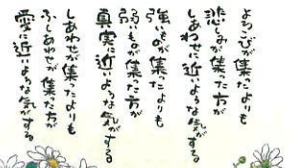 よろこびが集ったよりも
悲しみが集った方が
しあわせに近いような気がする
強いものが集ったよりも
弱いものが集った方が
真実に近いような気がする
しあわせが集ったよりも
ふしあわせが集った方が
愛に近いような気がする